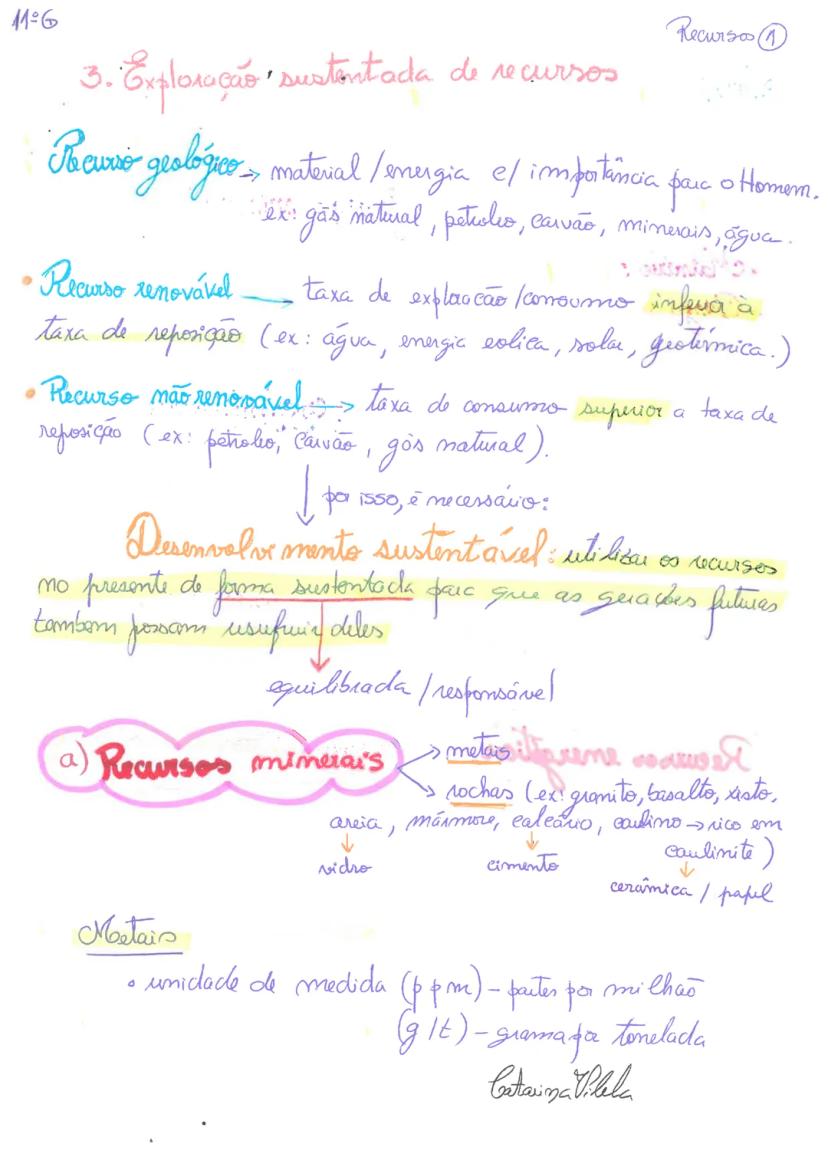 11ºG
Recursos 1
3. Exploração sustentada de recursos
Recurso geológico → material / energia c/ importância para o Homem.
ex: gás natural, petroleo, carvão, minerais, água.
• Recurso renovável → taxa de exploração / consumo inferior à
taxa de reposição (ex: água, energia eolica, solar, geotérmica.)
• Recurso não renovável → taxa de consumo superior a taxa de
reposição (ex: petroleo, carvão, gás natural).
por isso, é necessário:
Desenvolvimento sustentável: utilizar os recursos
no presente de forma sustentada para que as gerações futuras
tambem possam usufruir deles
equilibrada / responsável
a) Recursos minerais → metais
→ rochas (ex: granito, basalto, xisto,
areia, mármore, calcário, caulino → rico em
caulinite)
vidro cimento
cerâmica / papel
Metais
• unidade de medida (ppm) – partes por milhão
(g/t) – grama por tonelada
Catarina Vilela